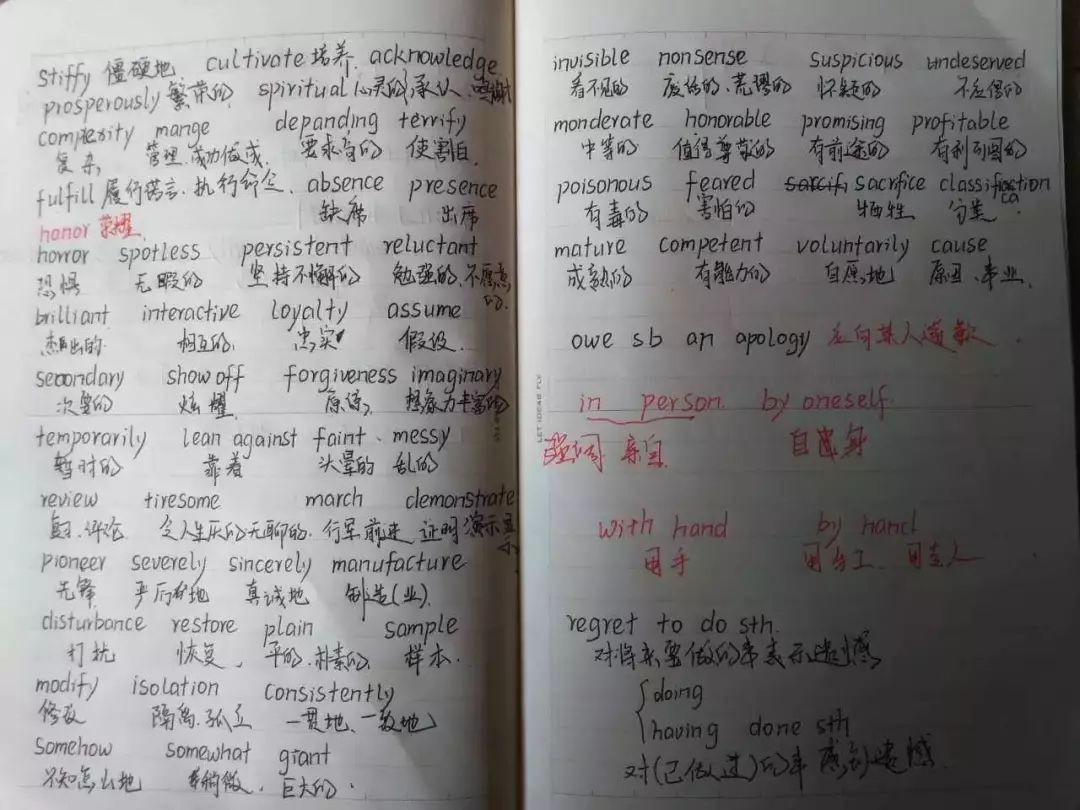 stiffy 僵硬地 cultivate 培养. acknowledge
prosperously 繁荣的 spiritual 心灵的 承认、
complexity mange depanding terrify
复杂 管理.成功做成. 要求高的 使害怕.
fulfill 履行诺言.执行 absence presence
缺席 出席
honor 荣耀
horror spotless persistent reluctant
恐惧 无暇的 坚持不懈的 勉强的.不愿意的.
brilliant interactive loyalty assume
杰出的 相互的. 忠实 假设.
secondary show off forgiveness imaginary
次要的 炫耀 原谅 想象力丰富的
temporarily lean against faint、messy
暂时的 靠着 头晕的 乱的
review tiresome march demonstrate
复习.评论 令人生厌的无聊的. 行军前进 证明演示显示
pioneer severely sincerely manufacture
先锋 严厉地 真诚地 制造(业).
disturbance restore plain sample
打扰 恢复. 平的.朴素的. 样本.
modify isolation consistently
修改 隔离.孤立 一贯地、一致地
somehow somewhat giant
不知怎么地 稍微. 巨大的.
invisible nonsense suspicious undeserved
看不见的 废话的.荒谬的 怀疑的 不应得的
monderate honorable promising profitable
中等的 值得尊敬的 有前途的 有利可图的
poisonous feared sacrfice classification
ca
有毒的 害怕的 牺牲 分类
mature competent voluntarily cause
成熟的 有能力的 自愿地 原因、事业.
owe sb an apology 应向某人道歉.
in person. by oneself.
强调 亲自. 自身
with hand by hand
用手 用手工.
regret to do sth.
对将来要做的事表示遗憾
doing
having done sth
对(已做过)的事感到遗憾.